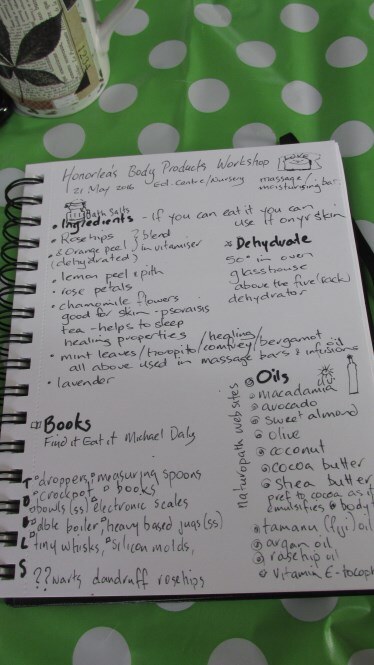 Honorlea's Body Products Workshop
21 May 2016 Ed. centre/Nursery
massage/
moisturising bar.
Bath Salts
Ingredients - If you can eat it you can
use it on yr skin
• Rosehips } blend
& Orange peel } in vitamiser
(dehydrated)
• lemon peel & pith
• rose petals
• chamomile flowers
good for skin - psoraisis
tea - helps to sleep
healing properties
• mint leaves/horopito/comfrey/bergamot
healing
all above used in massage bars & infusions
• lavender
* Dehydrate
50° in oven
glasshouse
above the fire (rack)
dehydrator
Books
Find it Eat it Michael Daly
TOOLS
droppers, measuring spoons
crockpot books
bowls (ss) electronic scales
dble boiler heavy based jugs (ss)
tiny whisks, silicon molds,
?? warts dandruff rosehips
naturopath web sites
Oils
macadamia
avocado
sweet almond
olive
coconut
cocoa butter
shea butter
pref to cocoa as it
emulsifies body
tamanu (fiji) oil
argan oil
rosehip oil
vitamin E - tocoph